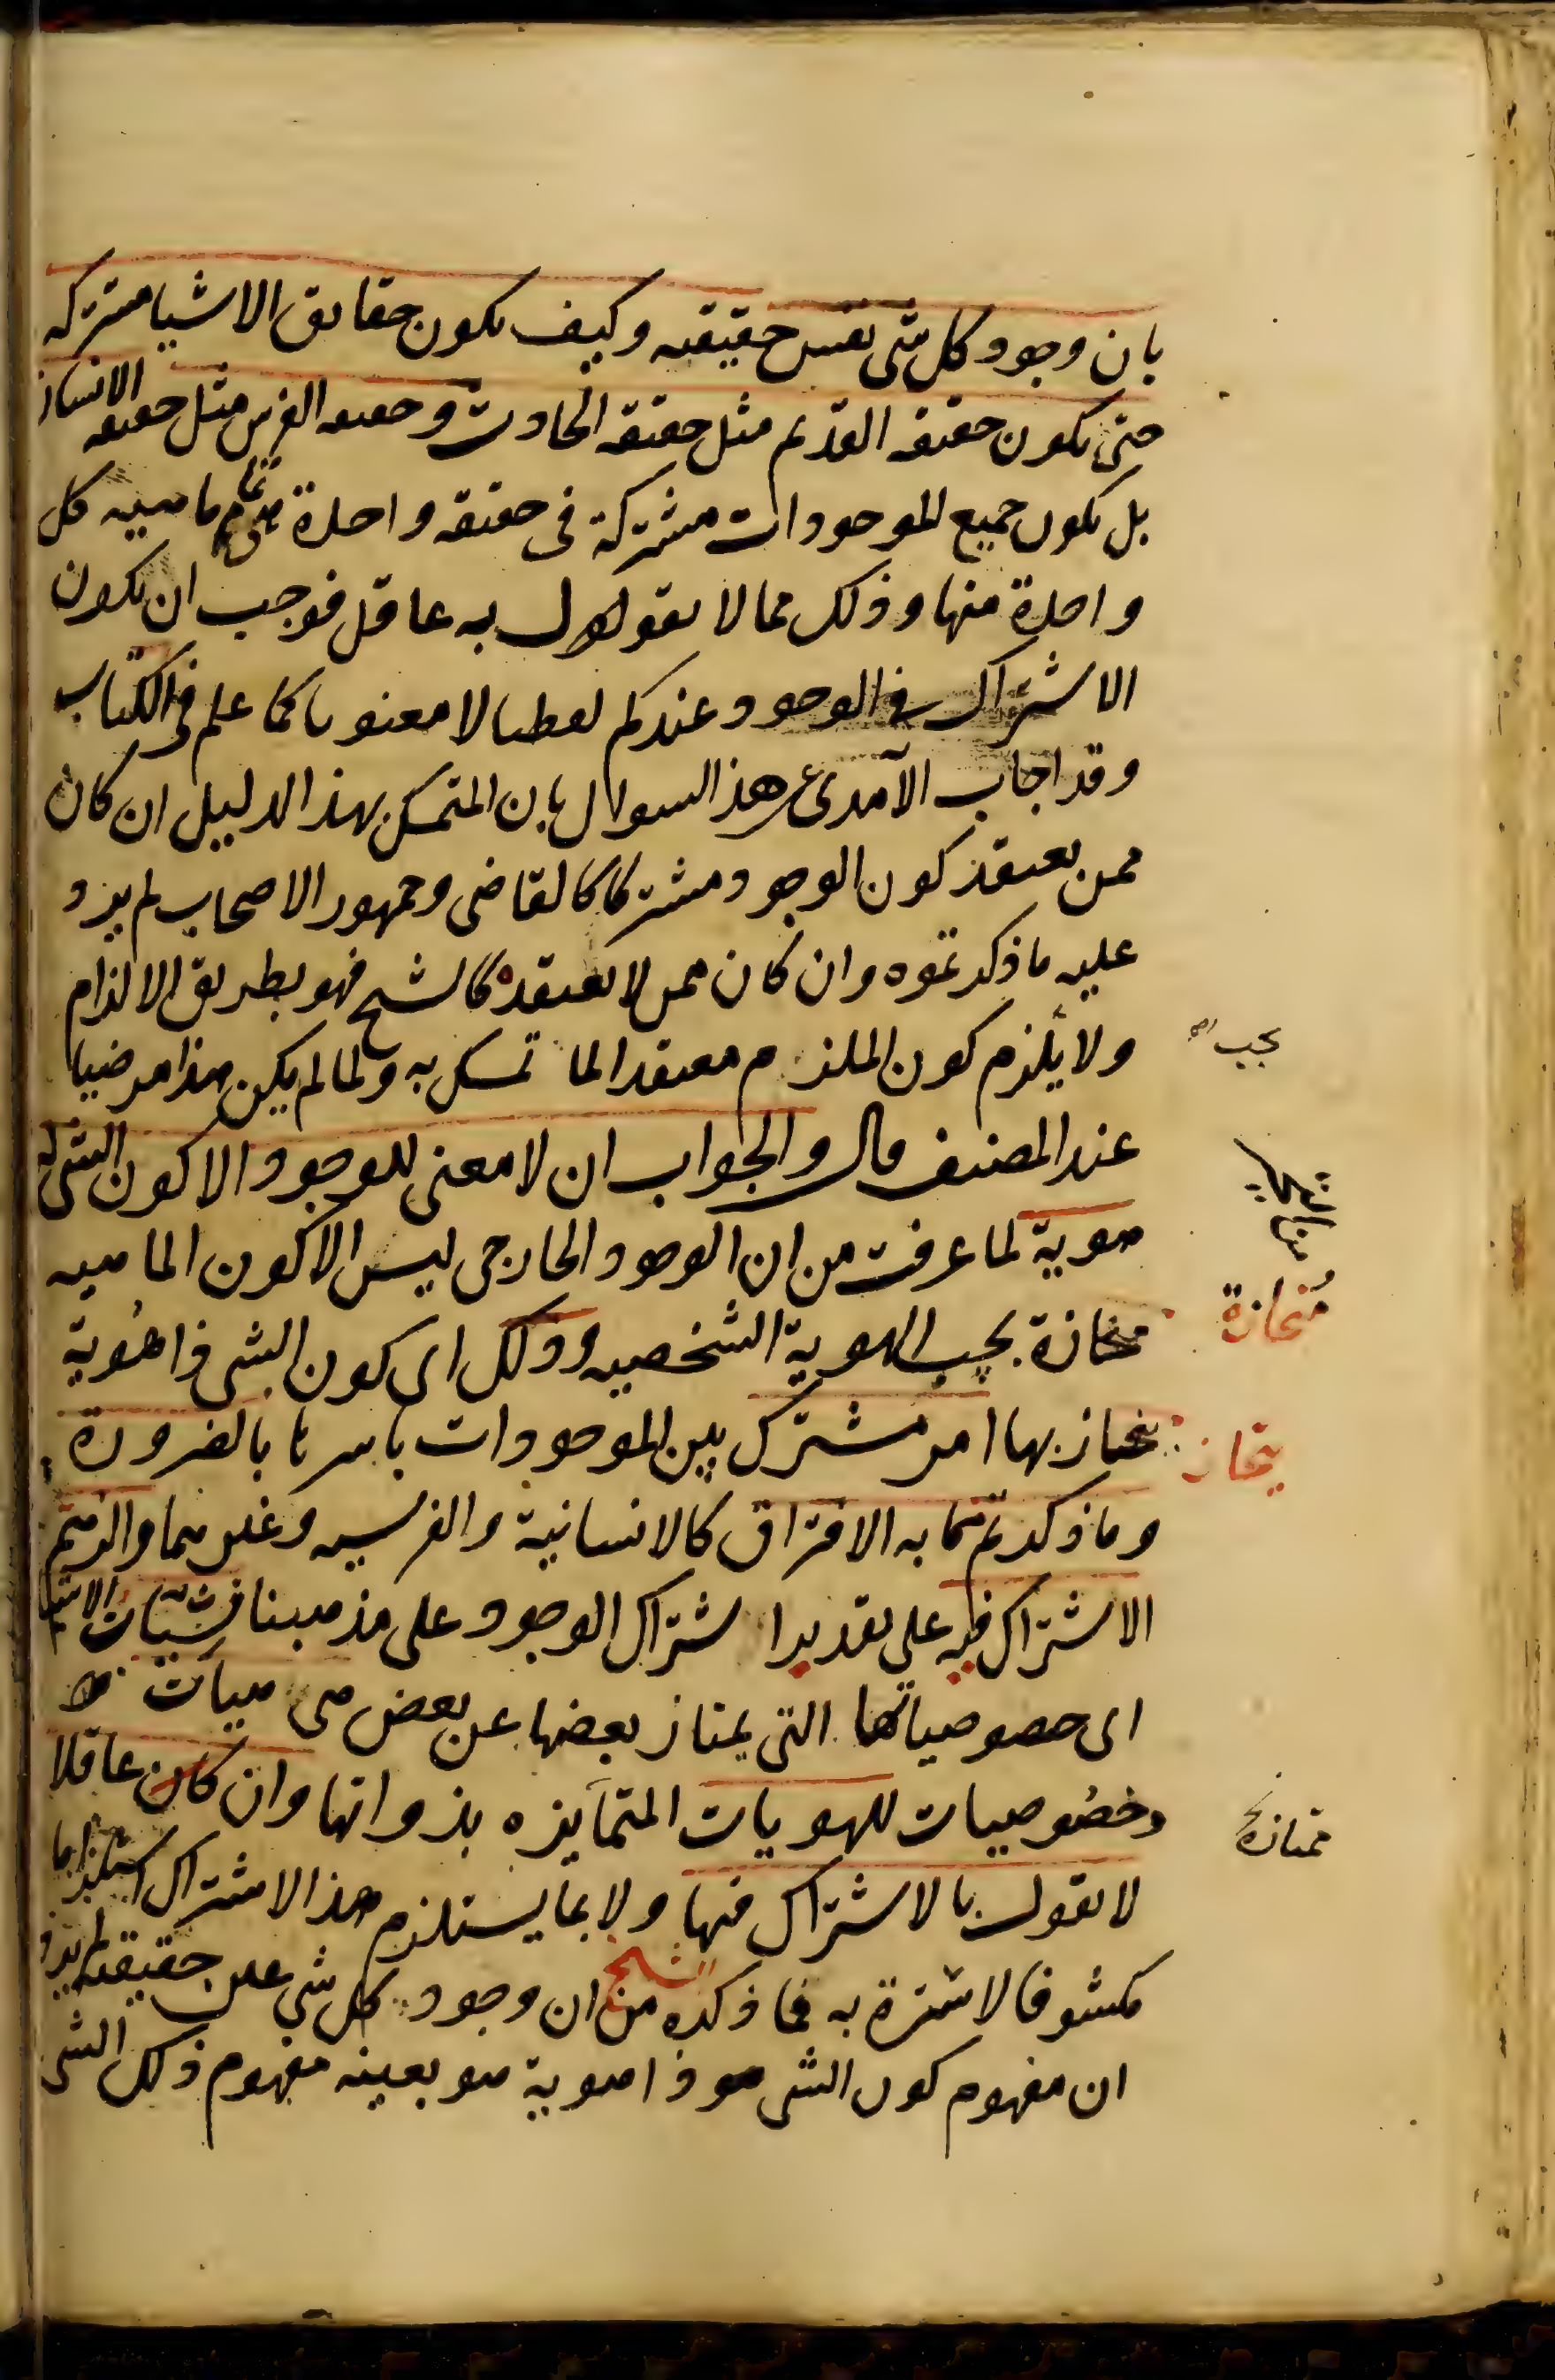 بان وجود كل شئ نفس حقيقته وكيف يكون حقايق الاشيا مشتركه
حتى يكون حقيقة القديم مثل حقيقة الحادث وحقيقة الفرس مثل حقيقة الانسان
بل يكون جميع الموجودات مشتركة فى حقيقة واحدة هى تمام ماهيه كل
واحدة منها وذلك مما لا يقول به عاقل فوجب ان يكون
الاشتراك فى الوجود عندكم لفظيا لا معنويا كما علم فى الكتاب
وقد اجاب الآمدى عن هذا السوال بان المتمسك بهذا الدليل ان كان
ممن يعتقد كون الوجود مشتركا كالقاضى وجمهور الاصحاب لم يرد
عليه ما ذكرتموه وان كان ممن لا يعتقده كالشيخ فهو بطريق الالزام
ولا يلزم كون الملزم معتقدا لما تمسك به ولما لم يكن هذا مرضيا
يجب
عند المصنف قال والجواب ان لا معنى للوجود الا كون الشئ له
هوية لما عرفت من ان الوجود الخارجى ليس الا كون الماهيه
منحازة بحسب الهوية الشخصيه وذلك اى كون الشئ ذا هوية
منحازة
ينحاز بها امر مشترك بين الموجودات باسرها بالضرورة
ينحاز
وما ذكرتم مما به الافتراق كالانسانية والفرسيه وغيرهما والزمتم
الاشتراك فيه على تقدير اشتراك الوجود على مذهبنا فشيئات الاشيا
اى خصوصياتها التى يمتاز بعضها عن بعض هى هيات
وخصوصيات للهويات المتمايزه بذواتها وان كان عاقلا
ممتازة
لا يقول بالاشتراك فيها ولا بما يستلزم هذا الاشتراك استلزاما
مكشوفا لا سترة به فما ذكره الشيخ من ان وجود كل شئ عين حقيقته لم يرد
ان مفهوم كون الشئ هو ذا هوية هو بعينه مفهوم ذلك الشئ